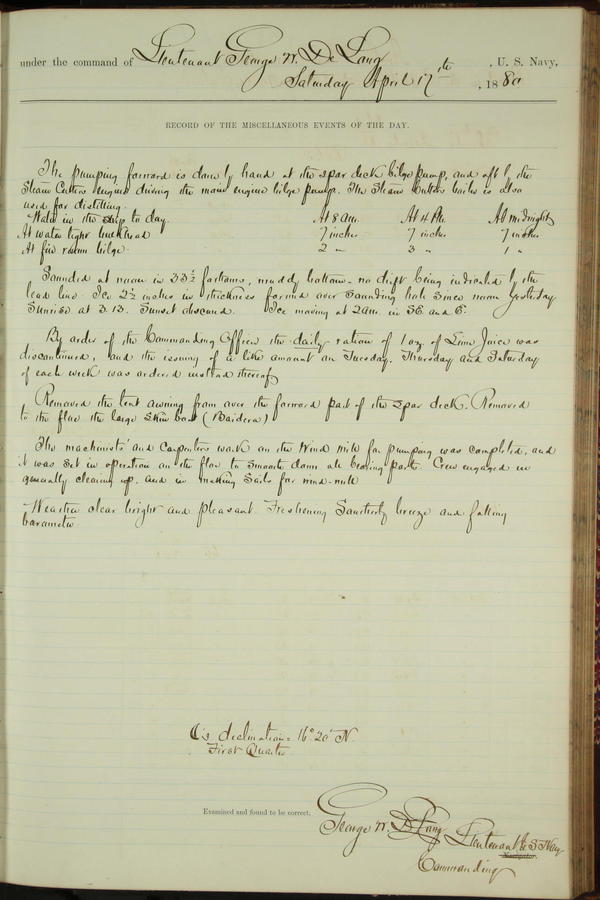 under the command of Lieutenant George W. De Long , U. S. Navy,
Saturday April 17th , 1880
RECORD OF THE MISCELLANEOUS EVENTS OF THE DAY.
The pumping forward is done by hand at the spar deck bilge pump, and aft by the
Steam Cutters engine driving the main engine bilge pumps. The Steam Cutters boiler is also
used for distilling.
Water in the ship to day. At 8 AM. At 4 PM. At midnight
At water tight bulkhead 7 inches 7 inches 7 inches
At fire room bilge 2 " 3 " 1 "
Sounded at noon in 33½ fathoms, muddy bottom - no drift being indicated by the
lead line. Ice 2½ inches in thickness formed over sounding hole since noon yesterday
Sunrise at 3.13. Sunset obscured. Ice moving at 2 AM in SE and E.
By order of the Commanding Officer the daily ration of 1 oz of Lime Juice was
discontinued, and the issuing of a like amount on Tuesday, Thursday and Saturday
of each week was ordered instead thereof
Removed the tent awning from over the forward part of the spar deck. Removed
to the floe the large skin boat (Baidera)
The machinists' and Carpenters work on the wind mill for pumping was completed, and
it was set in operation on the floe to smooth down all bearing parts. Crew engaged in
generally clearing up, and in making sails for wind-mill
Weather clear bright and pleasant. Freshening Southerly breeze and falling
barometer
☾'s declination = 16° 20' N.
First Quarter
Examined and found to be correct.
George W. De Long Lieutenant U. S. Navy
Navigator.
Commanding